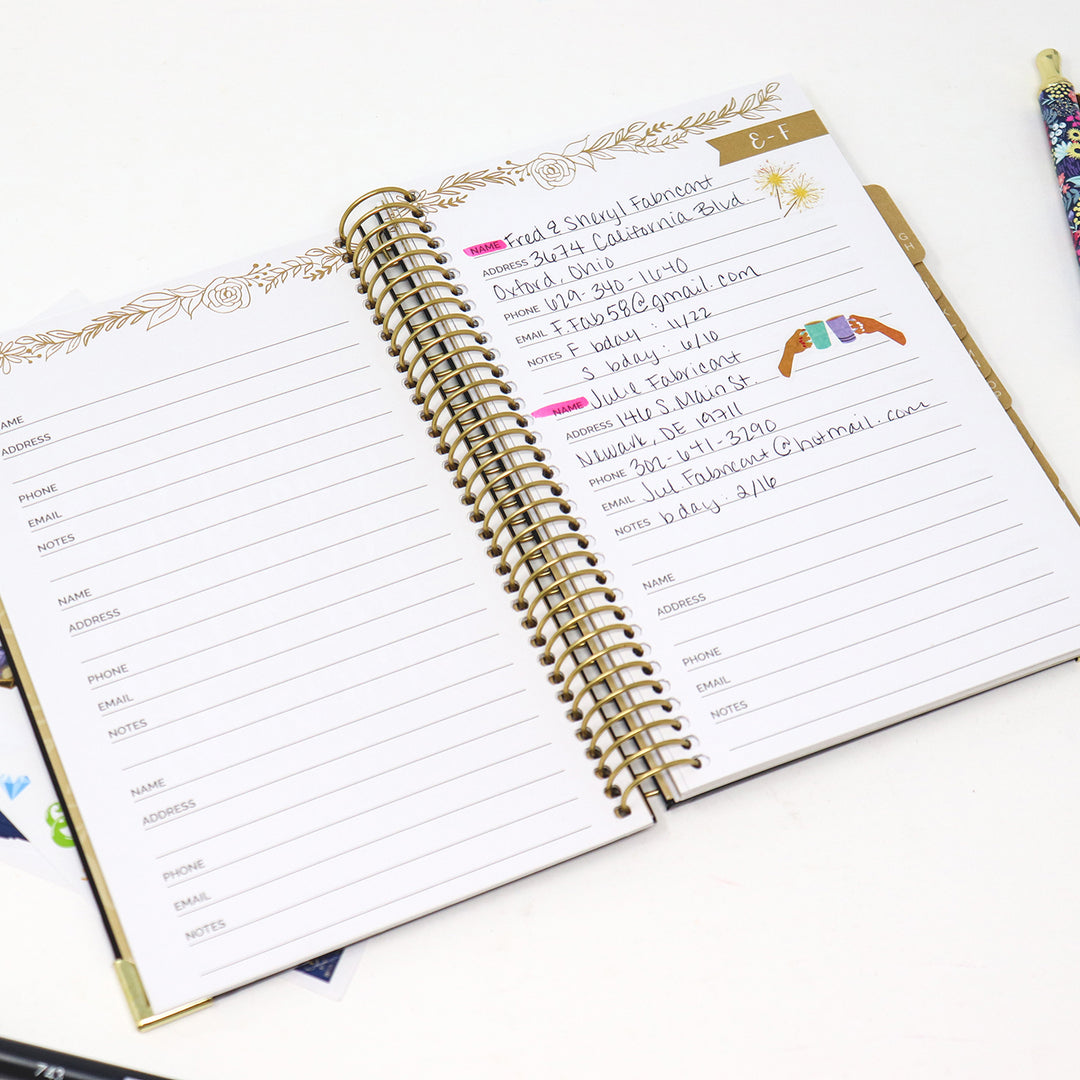 NAME
ADDRESS
PHONE
EMAIL
NOTES
NAME
ADDRESS
PHONE
EMAIL
NOTES
NAME
ADDRESS
PHONE
EMAIL
NOTES
E-F
NAME Fred & Sheryl Fabricant
ADDRESS 3674 California Blvd.
Oxford, Ohio
PHONE 629-340-1640
EMAIL F.Fab58@gmail.com
NOTES F bday: 11/22
S bday: 6/10
NAME Julie Fabricant
ADDRESS 146 S. Main St.
Newark, DE 19711
PHONE 302-641-3290
EMAIL Jul Fabricant@hotmail.com
NOTES bday: 2/16
NAME
ADDRESS
PHONE
EMAIL
NOTES
GH
743